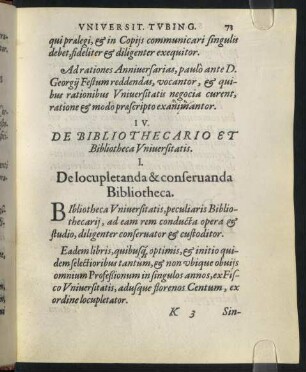 VNIVERSIT. TVBING. 73
qui prælegi, & in Copijs communicari singulis
debet, fideliter & diligenter exequitor.
Ad rationes Anniuersarias, paulò ante D.
Georgij Festum reddendas, vocantor, & qui-
bus rationibus Vniuersitatis negocia curent,
ratione & modo præscripto examinantor.
IV.
DE BIBLIOTHECARIO ET
Bibliotheca Vniuersitatis.
I.
De locupletanda & conseruanda
Bibliotheca.
BIbliotheca Vniuersitatis, peculiaris Biblio-
thecarij, ad eam rem conducta opera &
studio, diligenter conseruator & custoditor.
Eadem libris, quibusq; optimis, & initio qui-
dem selectioribus tantum, & non vbique obuijs
omnium Professionum in singulos annos, ex Fis-
co Vniuersitatis, adusque florenos Centum, ex
ordine locupletator.
K 3 Sin-